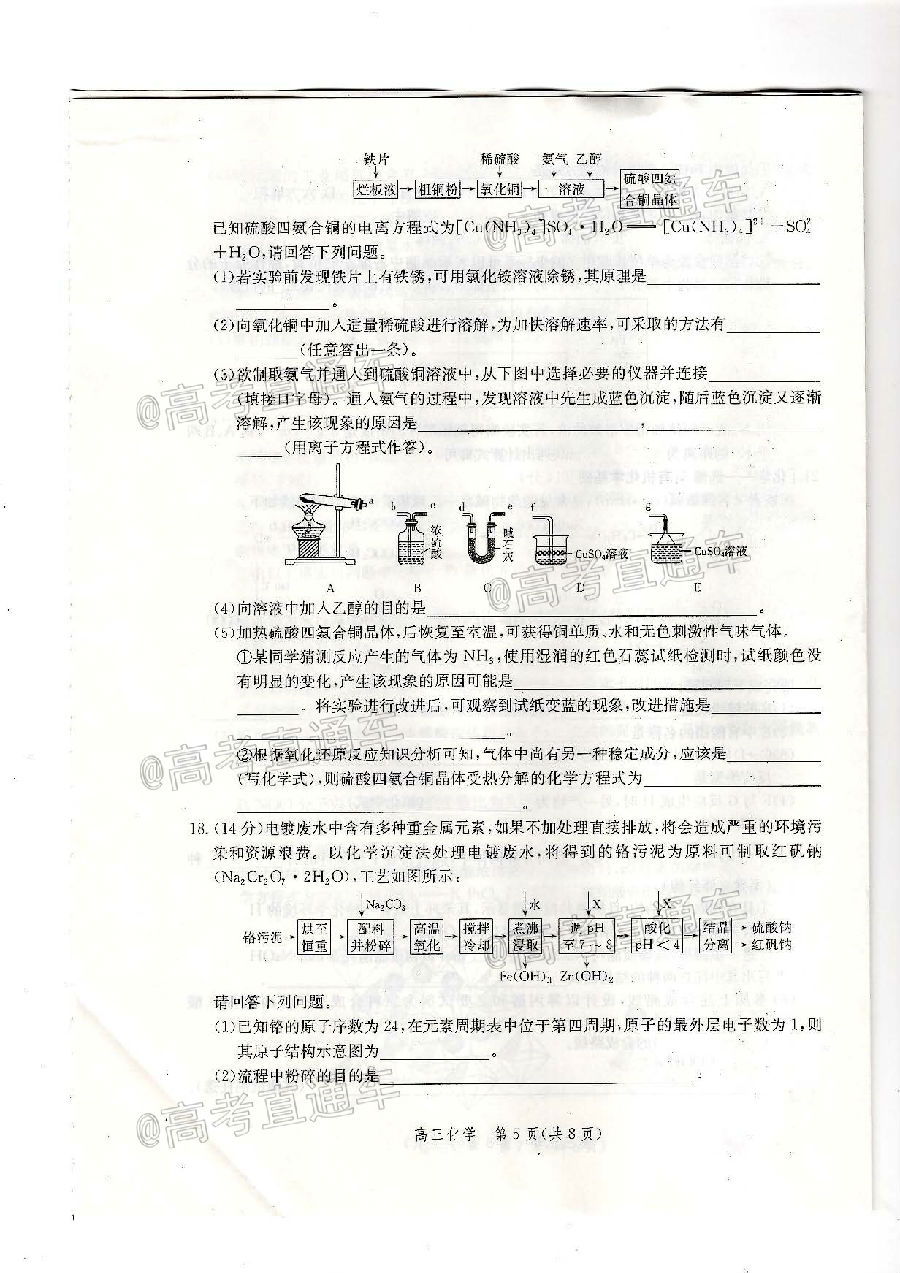 铁片 稀硫酸 氨气 乙醇
烂板液 粗铜粉 氧化铜 溶液 硫酸四氨合铜晶体
已知硫酸四氨合铜的电离方程式为[Cu(NH₃)₄]SO₄·H₂O══[Cu(NH₃)₄]²⁺+SO₄²⁻
+H₂O,请回答下列问题。
(1)若实验前发现铁片上有铁锈,可用氯化铵溶液除锈,其原理是
。
(2)向氧化铜中加入适量稀硫酸进行溶解,为加快溶解速率,可采取的方法有
(任意答出一条)。
(3)欲制取氨气并通入到硫酸铜溶液中,从下图中选择必要的仪器并连接
(填接口字母)。通入氨气的过程中,发现溶液中先生成蓝色沉淀,随后蓝色沉淀又逐渐
溶解,产生该现象的原因是 、
(用离子方程式作答)。
a b c d e f g
浓硫酸 碱石灰 CuSO₄溶液 CuSO₄溶液
A B C D E
(4)向溶液中加入乙醇的目的是 。
(5)加热硫酸四氨合铜晶体,后恢复至室温,可获得铜单质、水和无色刺激性气味气体.
①某同学猜测反应产生的气体为NH₃,使用湿润的红色石蕊试纸检测时,试纸颜色没
有明显的变化,产生该现象的原因可能是
. 将实验进行改进后,可观察到试纸变蓝的现象,改进措施是
.
②根据氧化还原反应知识分析可知,气体中尚有另一种稳定成分,应该是
(写化学式),则硫酸四氨合铜晶体受热分解的化学方程式为
。
18.(14分)电镀废水中含有多种重金属元素,如果不加处理直接排放,将会造成严重的环境污
染和资源浪费。以化学沉淀法处理电镀废水,将得到的铬污泥为原料可制取红矾钠
(Na₂Cr₂O₇·2H₂O),工艺如图所示:
Na₂CO₃ 水 X X
铬污泥 烘至恒重 配料并粉碎 高温氧化 搅拌冷却 煮沸浸取 调pH至7~8 酸化pH<4 结晶分离 硫酸钠 红矾钠
Fe(OH)₃ Zn(OH)₂
请回答下列问题。
(1)已知铬的原子序数为24,在元素周期表中位于第四周期,原子的最外层电子数为1,则
其原子结构示意图为 。
(2)流程中粉碎的目的是 .
高三化学 第5页(共8页)
@高考直通车
@高考直通车
@高考直通车
@高考直通车
@高考直通车
@高考直通车